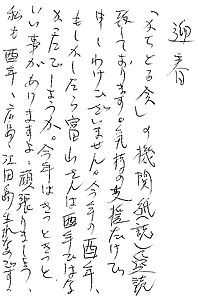 迎春
「かちとる会」の機関紙誌、愛読
致しております。気持の支援だけで
申しわけございません。今年の酉年、
もしかしたら富山さんは酉年ではな
かったでしょうか。今年はきっときっと
いい事がありますよ。頑張りましょう。
私も酉年、広島・江田島生れなのです。